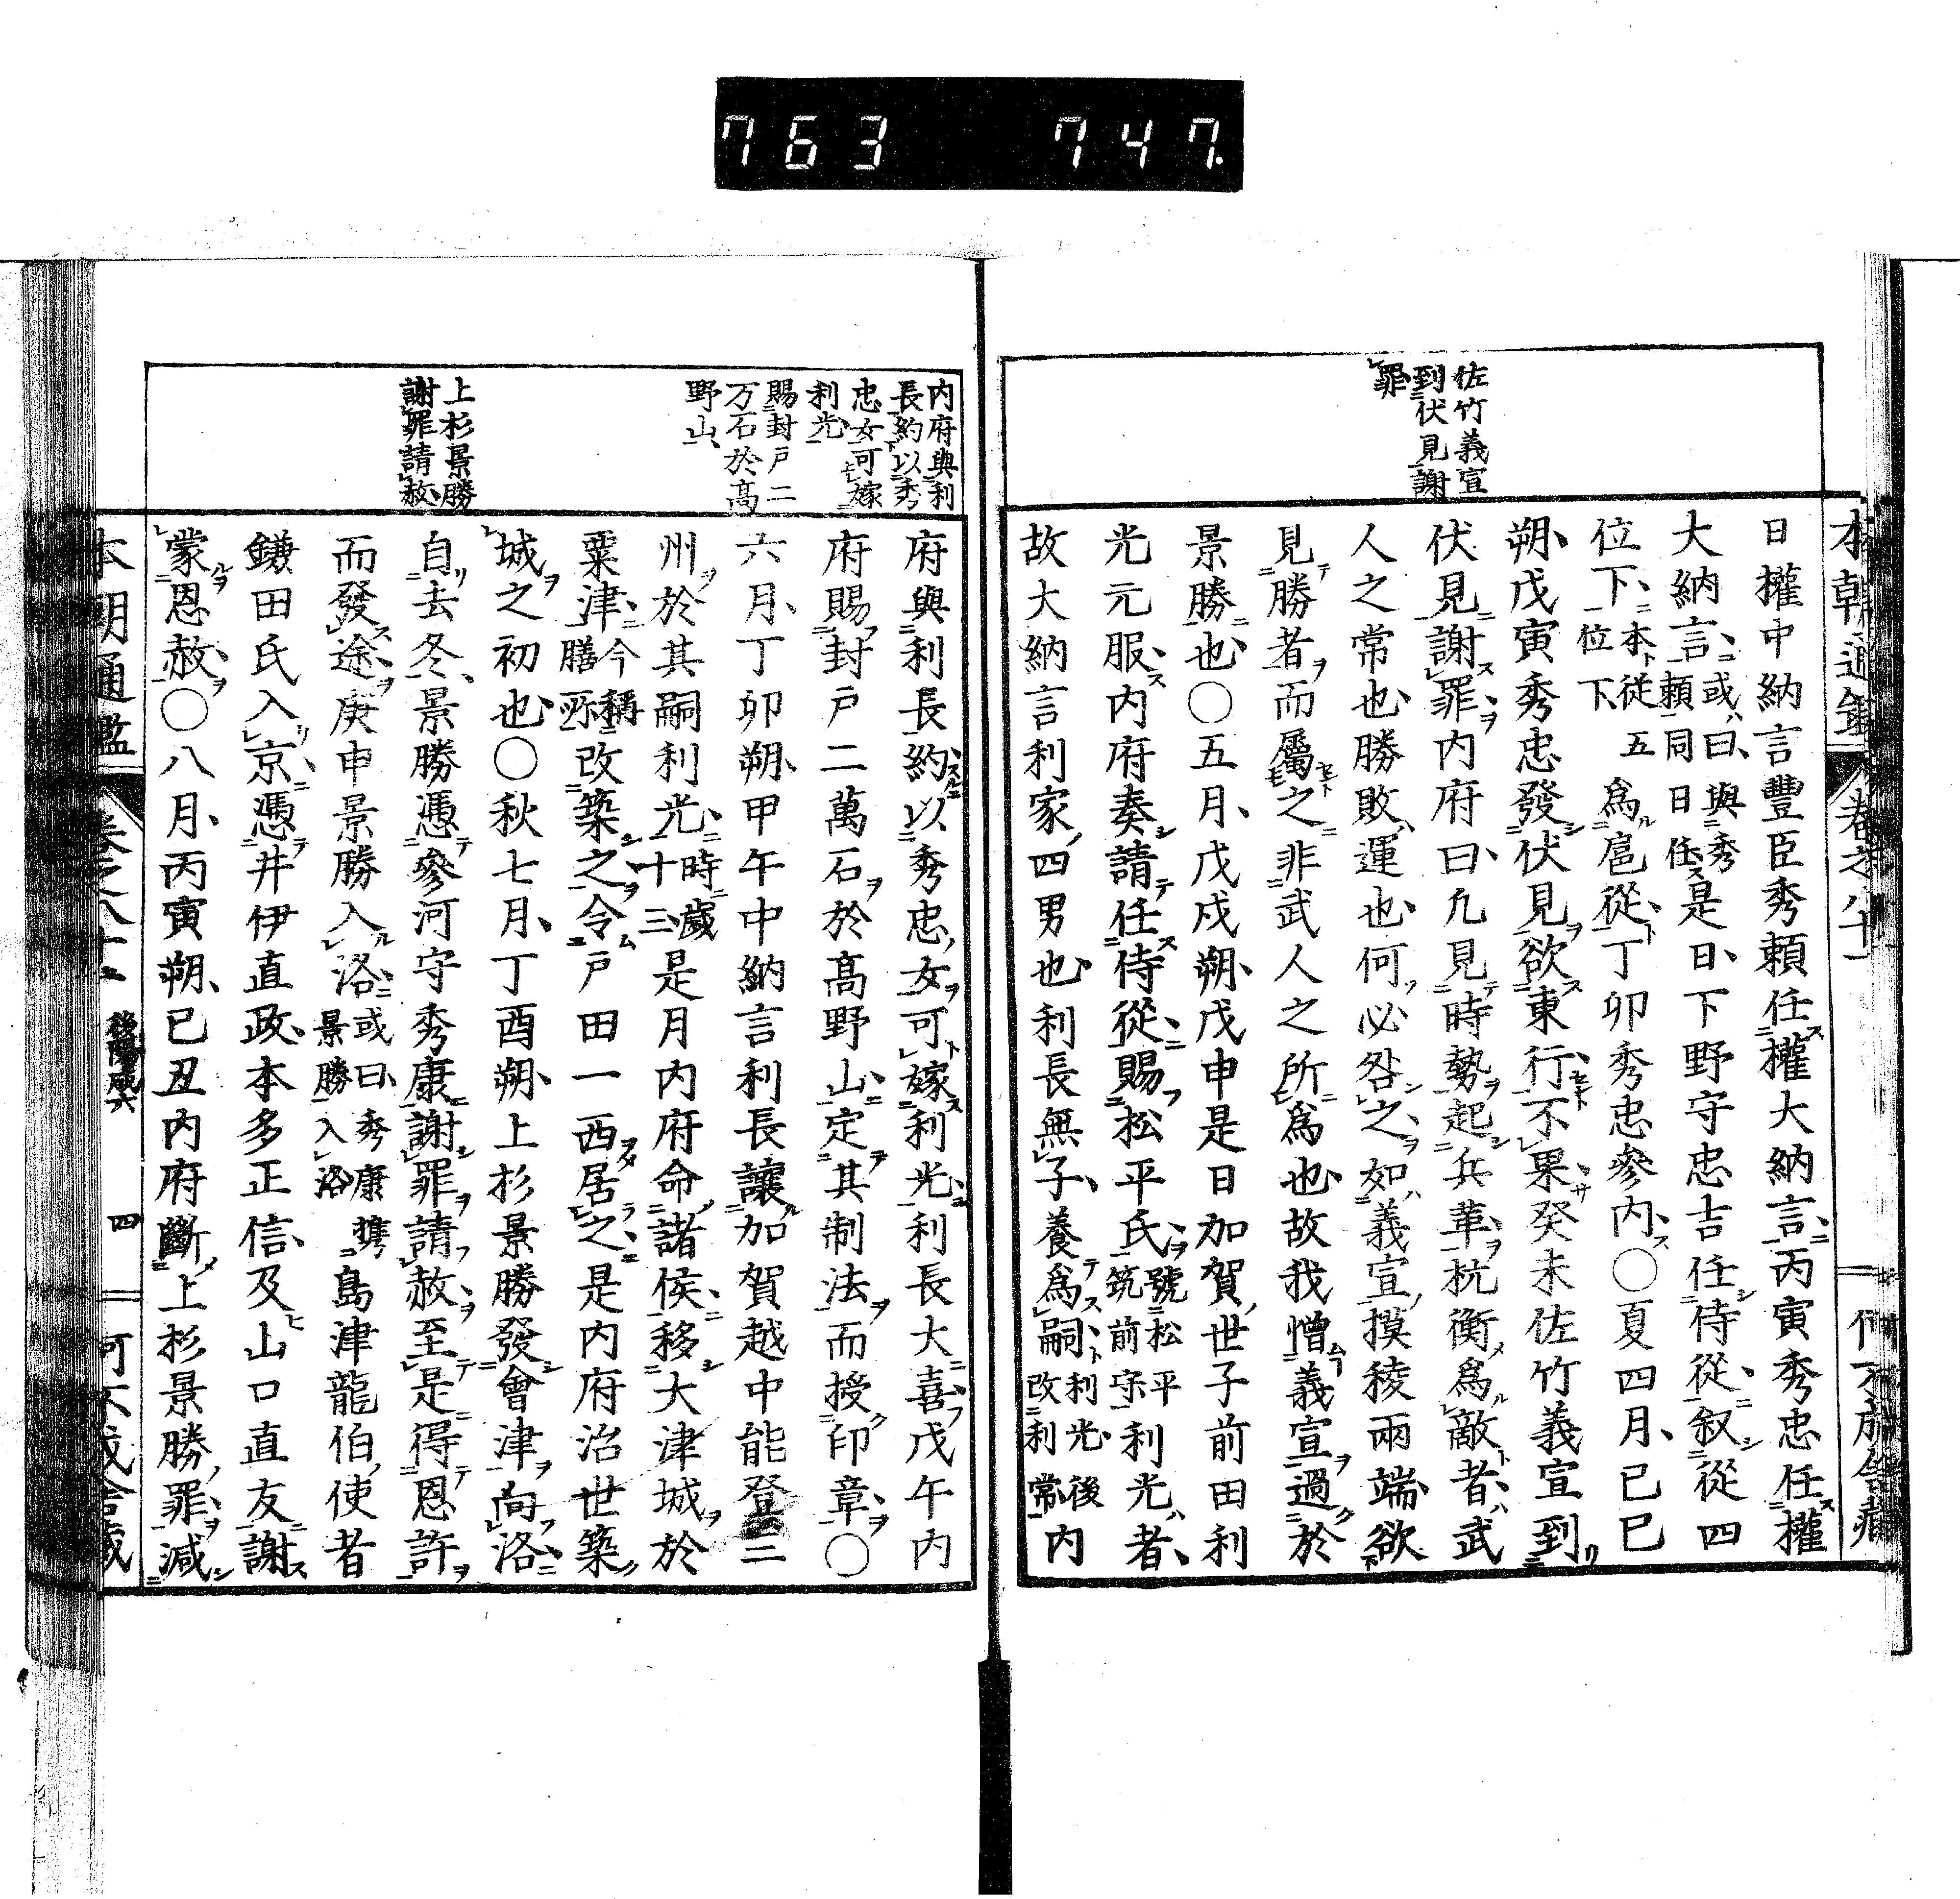 763 747.
佐竹義宣
到伏見謝
罪
日權中納言豐臣秀賴任權大納言丙寅秀忠任權
大納言或曰與秀賴同日任是日下野守忠吉任侍從叙從四
位下本從五位下爲扈從丁卯秀忠參內〇夏四月己巳
朔戊寅秀忠發伏見欲東行不果癸未佐竹義宣到
伏見謝罪内府曰凢見時勢起兵革杭衡爲敵者武
人之常也勝敗運也何必咎之如義宣摸稜兩端欲
見勝者而屬之非武人之所爲也故我憎義宣過於
景勝也〇五月戊戌朔戊申是日加賀世子前田利
光元服内府奏請任侍從賜松平氏號松平筑前守利光者
故大納言利家四男也利長無子養爲嗣利光後改利常内
内府與利
長約以秀
忠女可嫁
利光
賜封戸二
万石於高
野山
上杉景勝
謝罪請赦
府與利長約以秀忠女可嫁利光利長大喜戊午内
府賜封戸二萬石於高野山定其制法而授印章〇
六月丁卯朔甲午中納言利長讓加賀越中能登三
州於其嗣利光時十三歲是月内府命諸侯移大津城於
粟津今稱膳所改築之令戸田一西居之是内府治世築
城之初也〇秋七月丁酉朔上杉景勝發會津向洛
自去冬景勝憑參河守秀康謝罪請赦至是得恩許
而發途庚申景勝入洛或曰秀康携景勝入洛島津龍伯使者
鎌田氏入京憑井伊直政本多正信及山口直友謝
蒙恩赦〇八月丙寅朔己丑内府斷上杉景勝罪減
本朝通鑑 卷之八十一 後陽成六 四